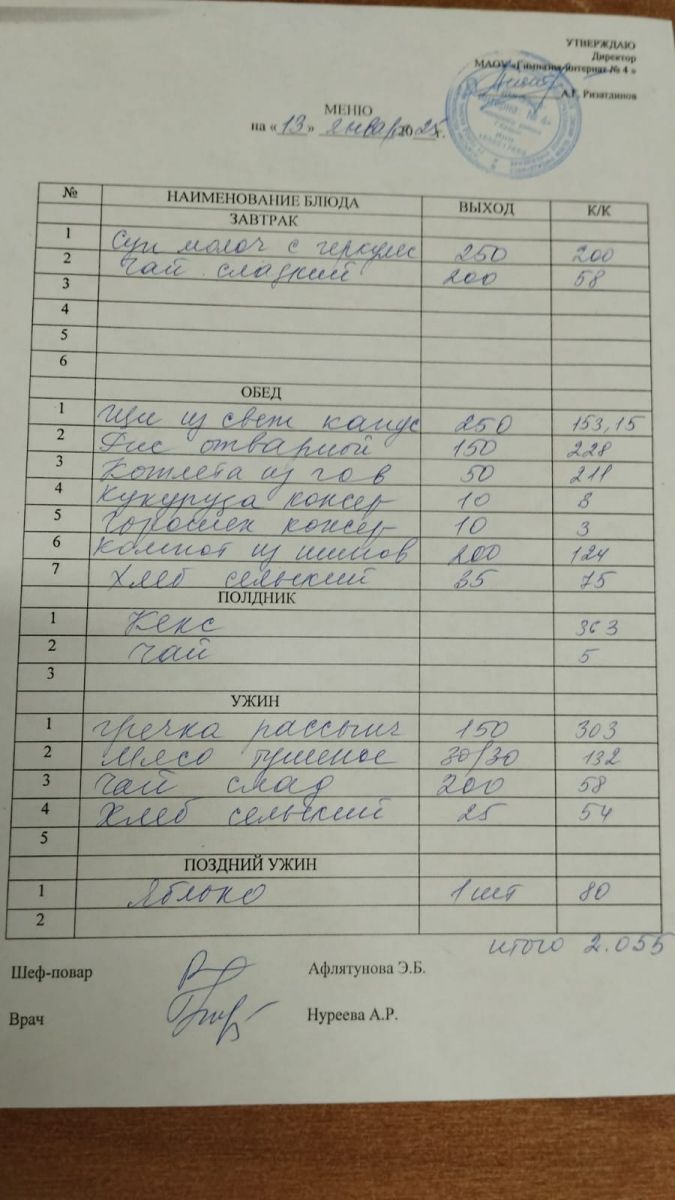 УТВЕРЖДАЮ
Директор
МАОУ «Гимназия-интернат № 4 »
А.Г. Ризатдинов
МЕНЮ
на « 13 » января 20 25 г.
№ НАИМЕНОВАНИЕ БЛЮДА ВЫХОД К/К
ЗАВТРАК
1 Суп молоч с геркулес 250 200
2 Чай сладкий 200 58
3
4
5
6
ОБЕД
1 Щи из свеж капус 250 153,15
2 Рис отварной 150 228
3 Котлета из гов 50 211
4 Кукуруза консер 10 8
5 Горошек консер 10 3
6 Компот из 200 124
7 Хлеб сельский 35 75
ПОЛДНИК
1 Кекс 363
2 Чай 5
3
УЖИН
1 гречка рассыпч 150 303
2 Мясо тушеное 30/30 132
3 Чай слад 200 58
4 Хлеб сельский 25 54
5
ПОЗДНИЙ УЖИН
1 Яблоко 1 шт 80
2
итого 2.055
Шеф-повар Афлятунова Э.Б.
Врач Нуреева А.Р.